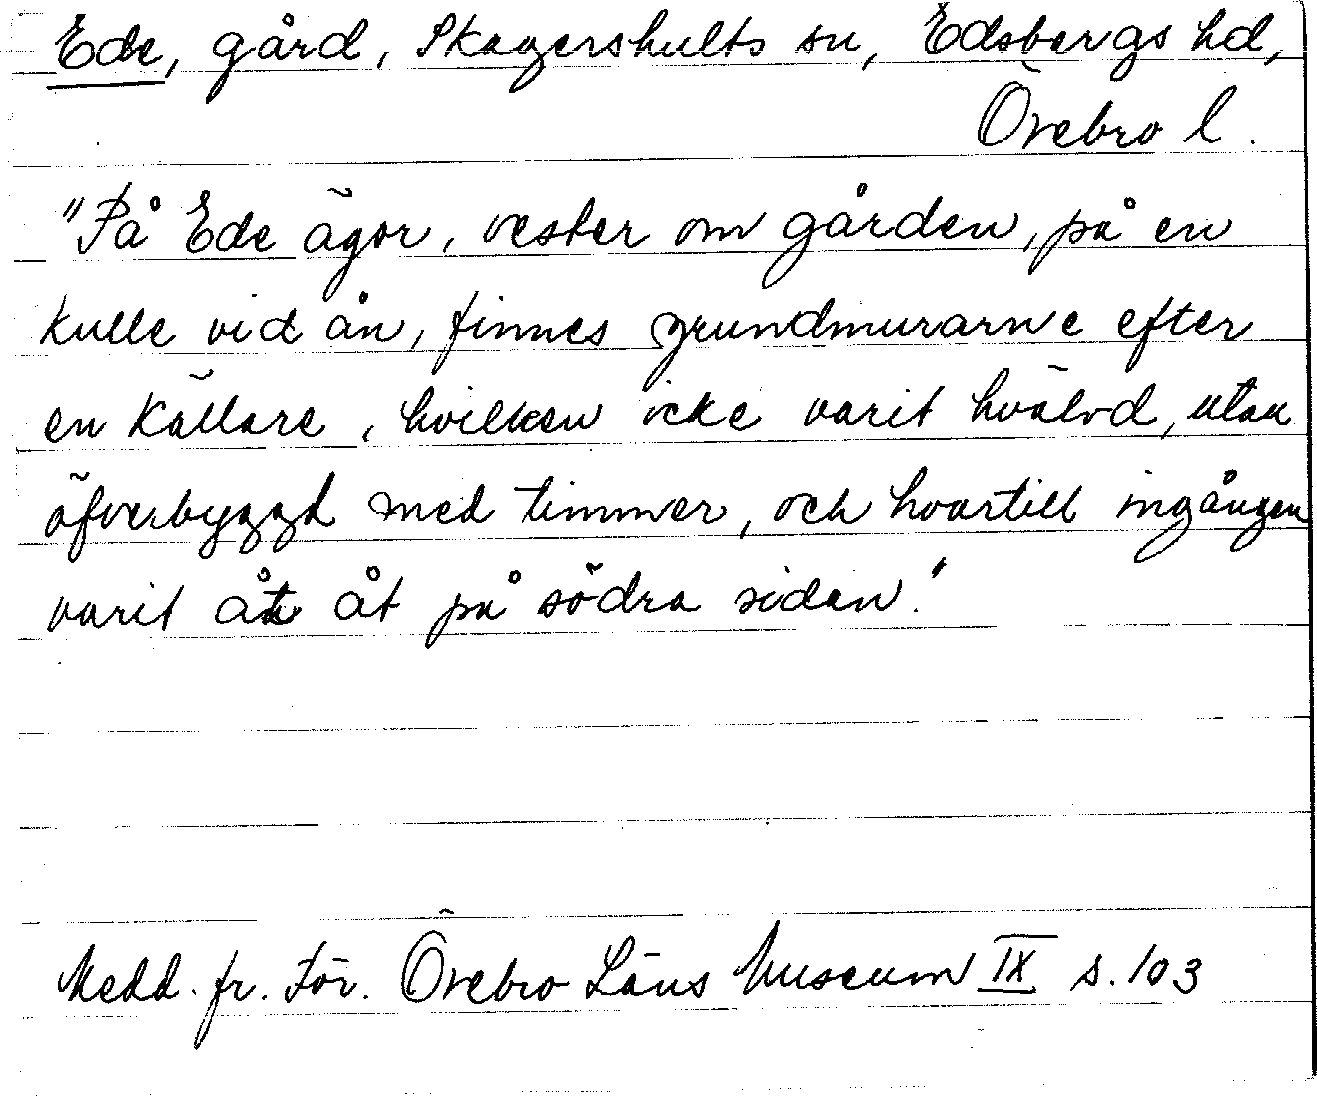 Ede, gård, Skagershults sn, Edsbergs hd,
Örebro l.
"På Ede ägor, vester om gården, på en
kulle vid ån, finnes grundmurarne efter
en källare, hvilken icke varit hvälvd, utan
öfverbyggd med timmer, och hvartill ingången
varit åt på södra sidan."
Medd. fr. För. Örebro Läns Museum IX s. 103